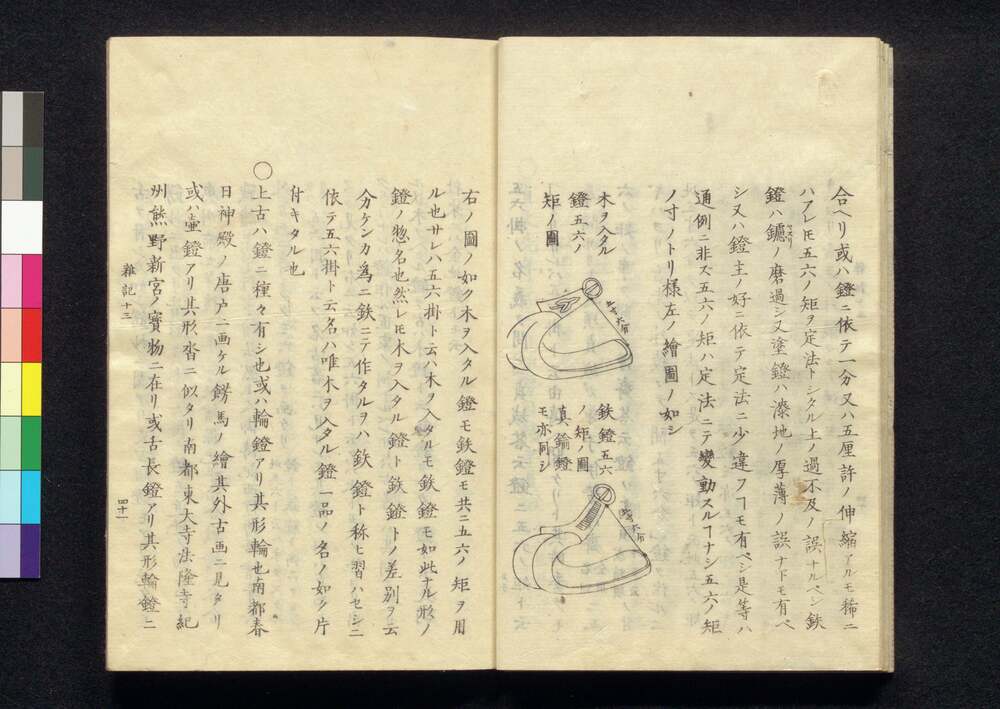 合ヘリ或ハ鐙ニ依テ一分又ハ五厘許ノ伸縮アルモ稀ニ
ハアレ𪜈五六ノ矩ヲ定法トシタル上ノ過不及ノ誤ナルベシ鉄
鐙ハ鑢ノ磨過シ又塗鐙ハ漆地ノ厚薄ノ誤ナドモ有ベ
ヤスリ
シ又ハ鐙主ノ好ニ依テ定法ニ少違フヿモ有ベシ是等ハ
通例ニ非ズ五六ノ矩ハ定法ニテ変動スルヿナシ五六ノ矩
ノ寸ノトリ様左ノ繪圖ノ如シ
木ヲ入タル
鐙五六ノ
矩ノ圖
鉄鐙五六
ノ矩ノ圖
真鍮鐙
モ亦同シ
右ノ圖ノ如ク木ヲ入タル鐙モ鉄鐙モ共ニ五六ノ矩ヲ用
ル也サレハ五六掛ト云ハ木ヲ入タルモ鉄鐙モ如此ナル形ノ
鐙ノ惣名也然レ𪜈木ヲ入タル鐙ト鉄鐙トノ差別ヲ云
分ケンカ為ニ鉄ニテ作タルヲハ鉄鐙ト称ヒ習ハセシニ
依テ五六掛ト云名ハ唯木ヲ入タル鐙一品ノ名ノ如ク片
付キタル也
〇上古ハ鐙ニ種々有シ也或ハ輪鐙アリ其形輪也南都春
日神殿ノ唐戸ニ画ケル餝馬ノ繪其外古画ニ見タリ
或ハ壷鐙アリ其形沓ニ似タリ南都東大寺法隆寺紀
州熊野新宮ノ寳物ニ在リ或古長鐙アリ其形輪鐙ニ
雜記十二
四十一